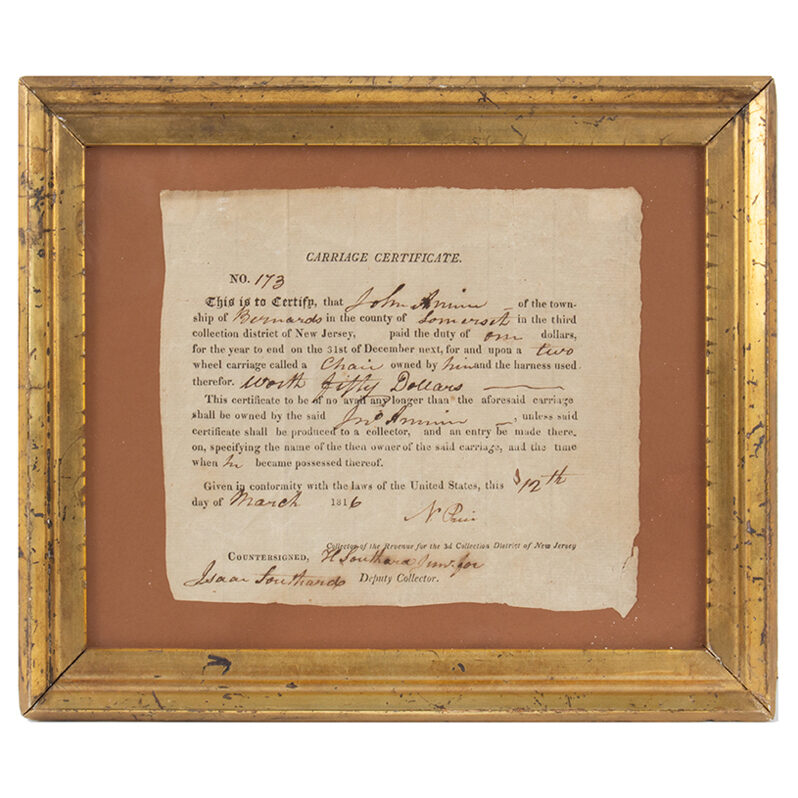 CARRIAGE CERTIFICATE.
NO. 173
This is to Certify, that John Annin of the town-
ship of Bernards in the county of Somerset in the third
collection district of New Jersey, paid the duty of one dollars,
for the year to end on the 31st of December next, for and upon a two
wheel carriage called a Chair owned by him and the harness used
therefor. worth fifty Dollars
This certificate to be of no avail any longer than the aforesaid carriage
shall be owned by the said Jno Annin, unless said
certificate shall be produced to a collector, and an entry be made there
on, specifying the name of the then owner of the said carriage, and the time
when he became possessed thereof.
Given in conformity with the laws of the United States, this 12th
day of March 1816
N
Collector of the Revenue for the 3d Collection District of New Jersey
COUNTERSIGNED, H Southard Junr. for
Isaac Southard Deputy Collector.